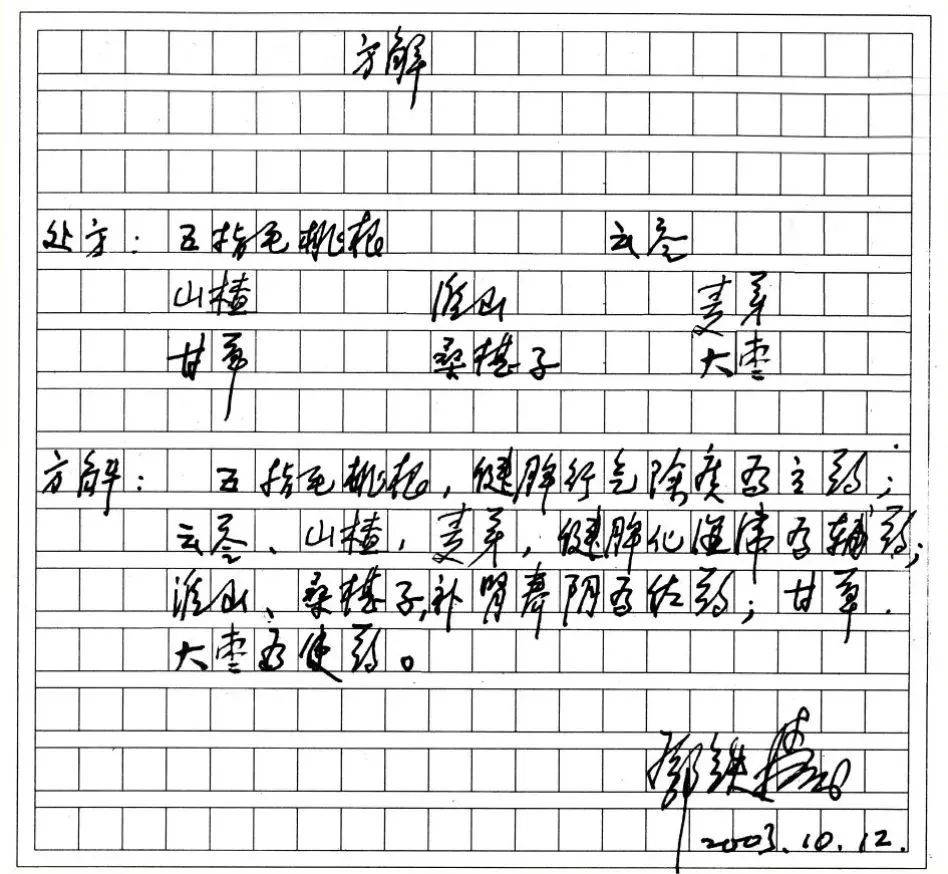 方解
处方：五指毛桃根 云苓
山楂 淮山 麦芽
甘草 桑椹子 大枣
方解：五指毛桃根，健脾行气除痰为主药；
云苓、山楂，麦芽，健脾化湿滞为辅药；
淮山、桑椹子，补肾养阴为佐药；甘草.
大枣为使药。
邓铁涛
2003.10.12.